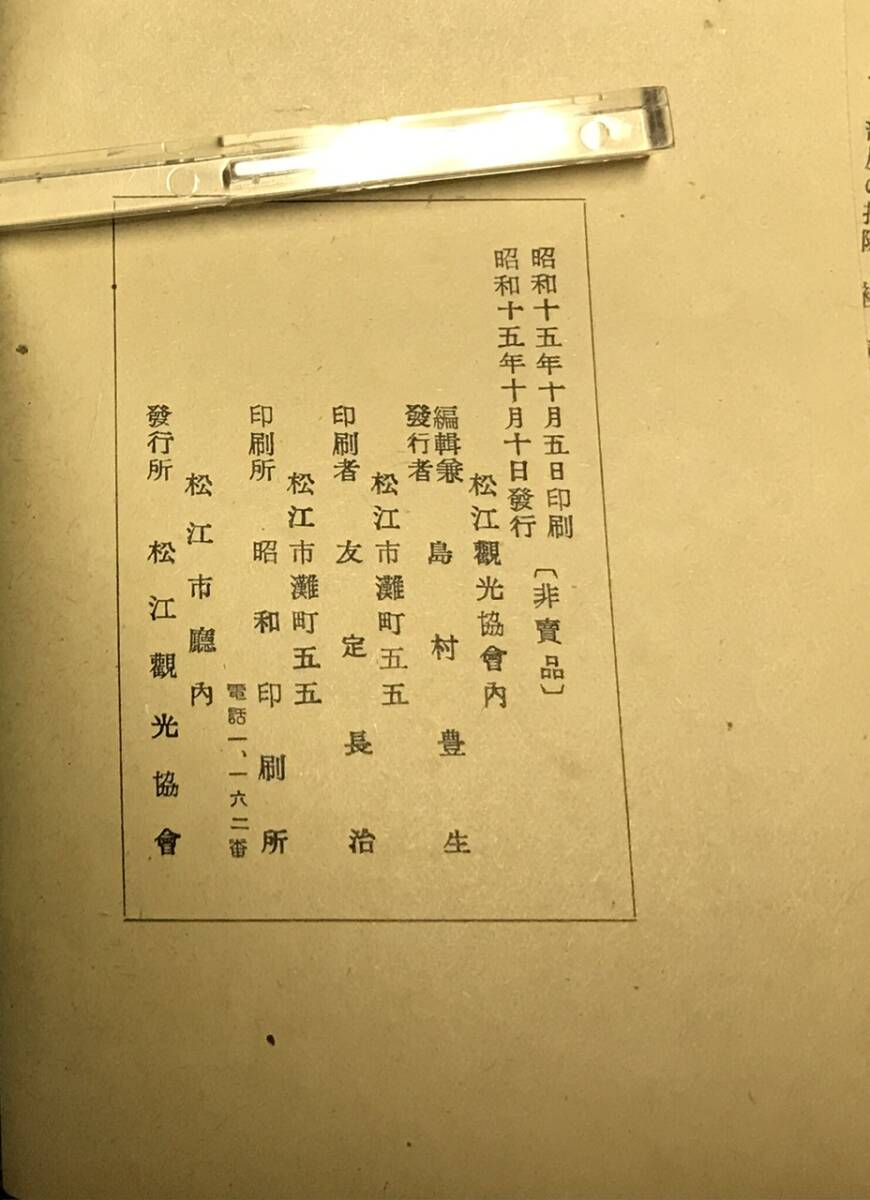 昭和十五年十月五日印刷
〔非賣品〕
昭和十五年十月十日發行
松江觀光協會內
編輯兼
發行者 島村豊生
松江市灘町五五
印刷者 友定長治
松江市灘町五五
印刷所 昭和印刷所
電話一、一六二番
松江市廳內
發行所 松江觀光協會